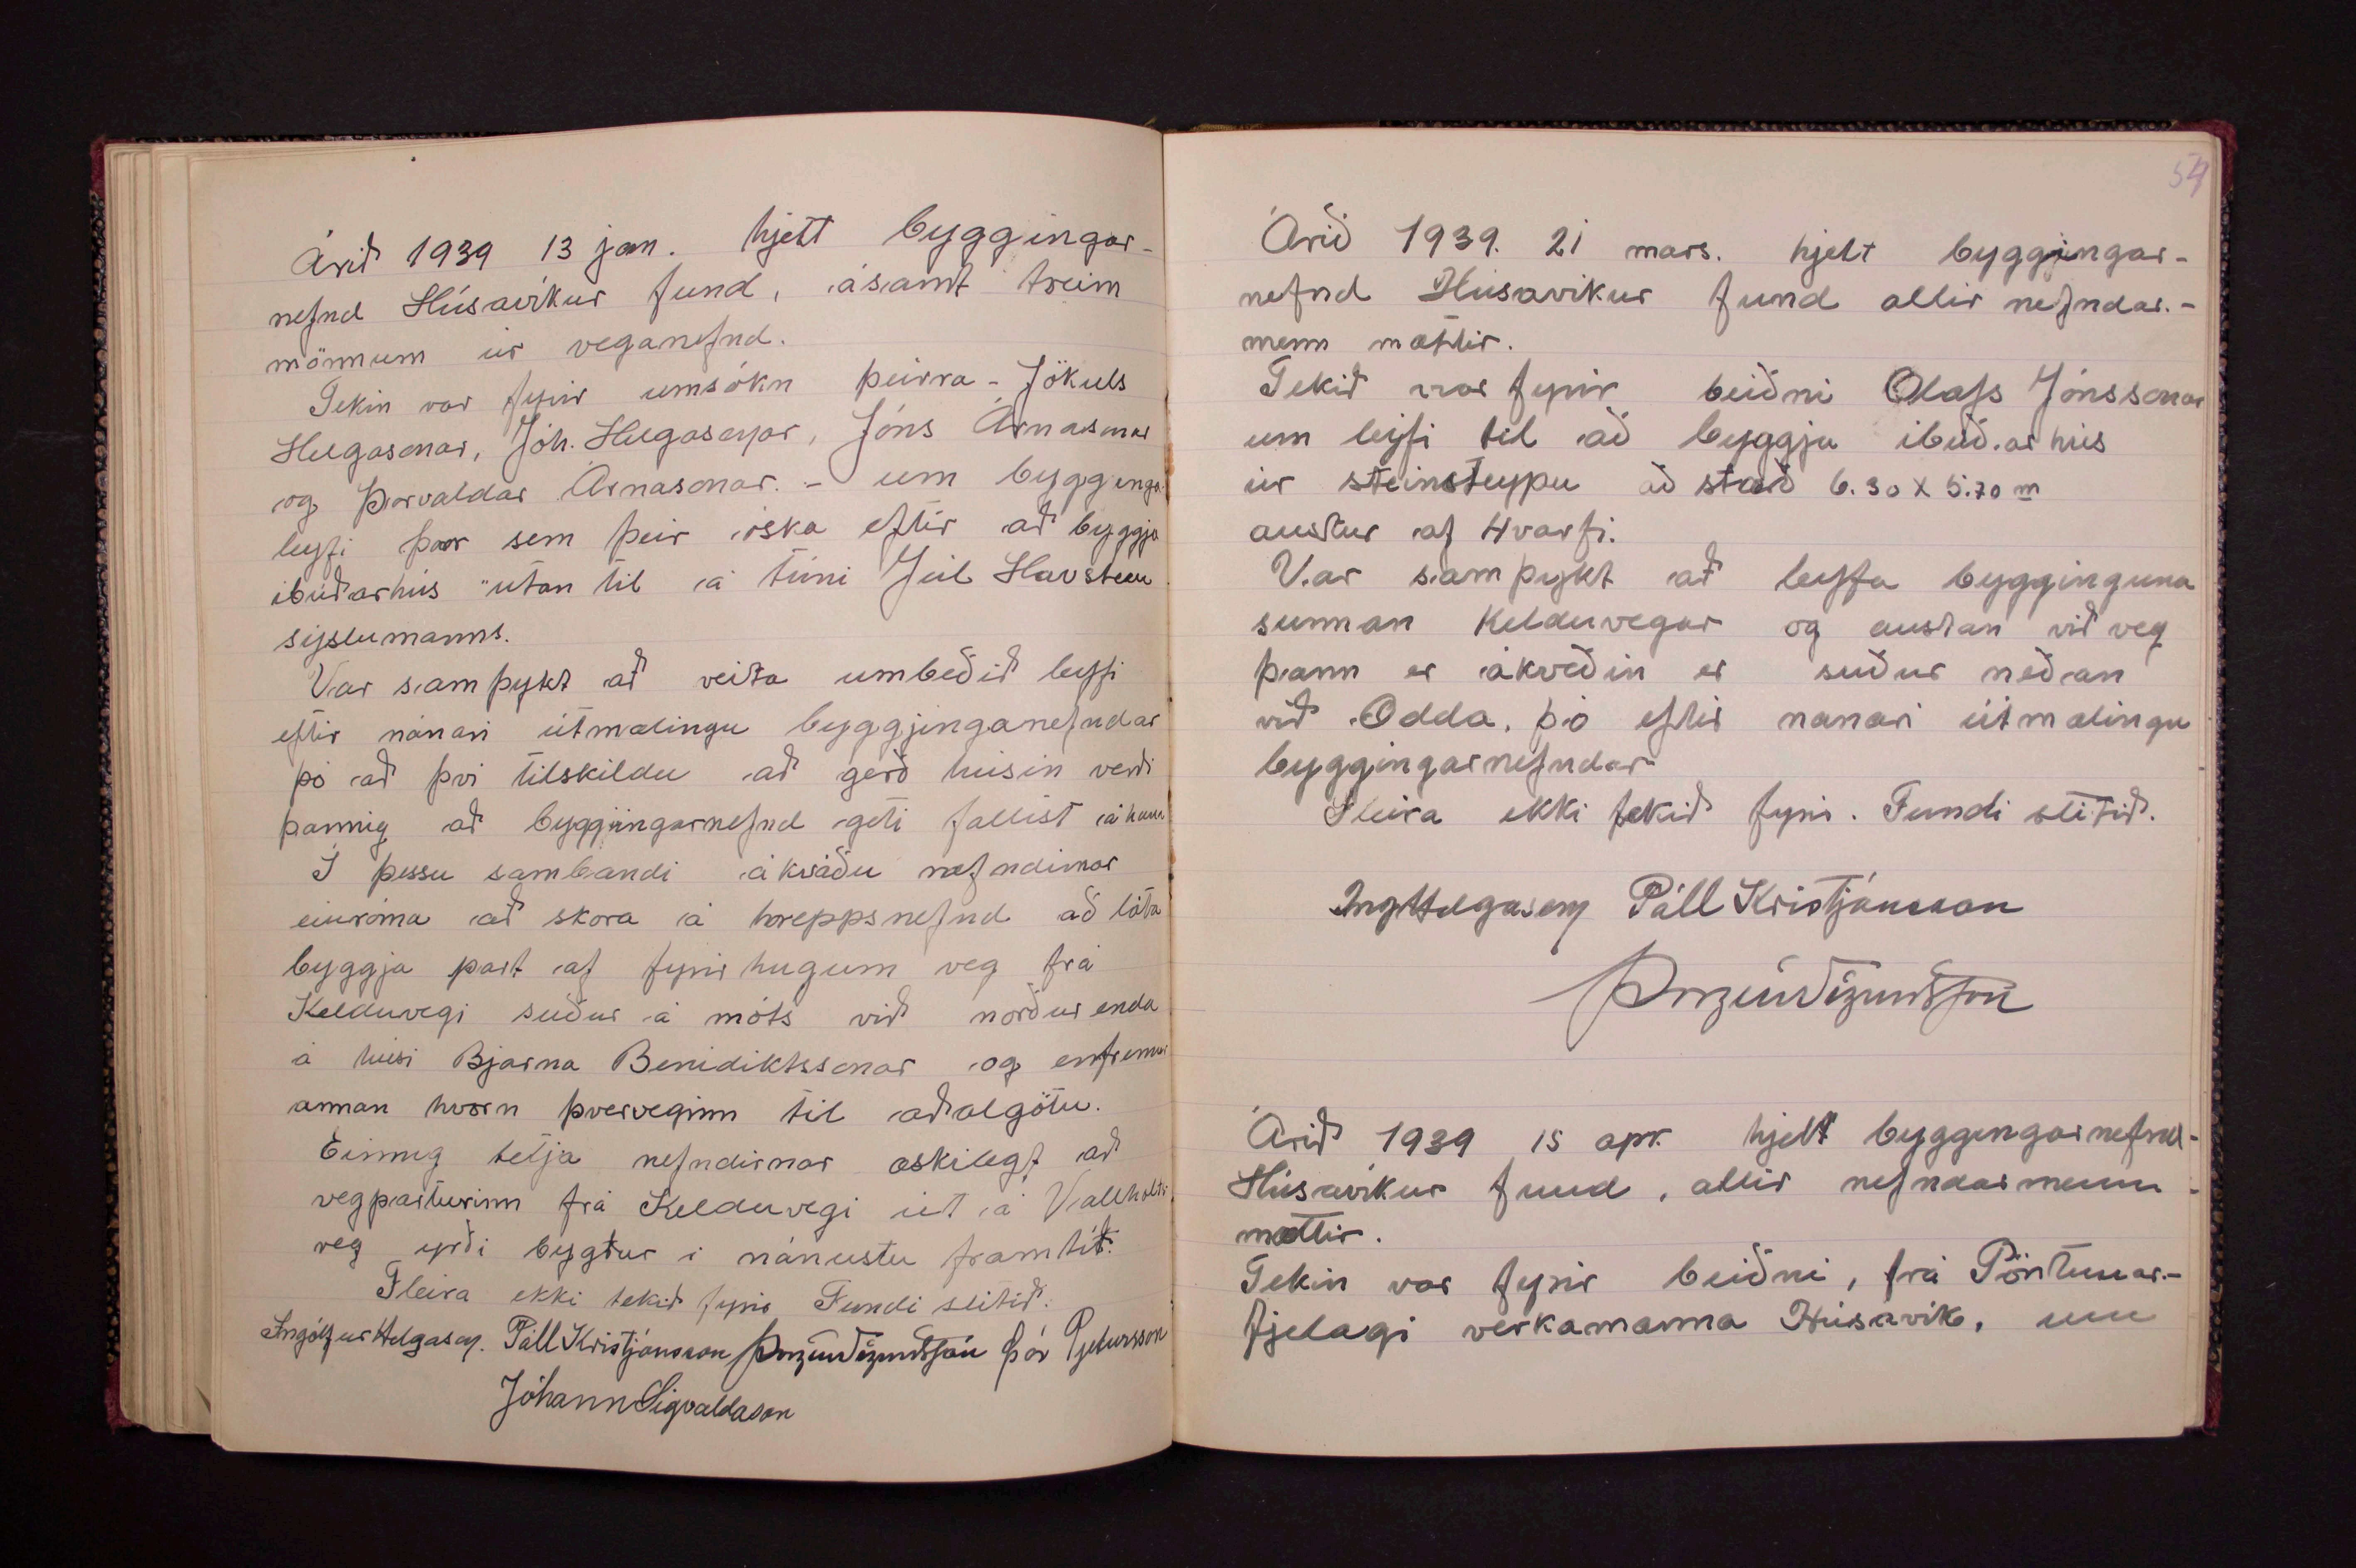 Árið 1939 13 jan. hjelt byggingar-
nefnd Húsavíkur fund, ásamt treim
mönnum úr veganefnd.
Tekin var fyrir umsókn þeirra - Jökuls
Helgasonar, Jóh. Helgasonar, Jóns Árnasonar
og Þorvaldar Árnasonar. - um bygginga
leyfi þar sem þeir óska eftir að byggja
íbúðarhús utan til á túni Júl Havsteen
sýslumanns.
Var samþykt að veita umbeðið leyfi
eftir nánari útmælingu byggjinganefndar
þó að því tilskildu að gerð húsin verði
þannig að byggjingarnefnd geti fallist á hana
Í þessu sambandi ákváðu nefndirnar
einróma að skora á hreppsnefnd að láta
byggja part af fyrirhugum veg frá
Kelduvegi suður á móts við norður enda
á húsi Bjarna Benidiktssonar og enfremur
annan hvorn þverveginn til aðalgötu.
Einnig telja nefndirnar æskilegt að
vegparturinn frá Kelduvegi út á Vallholts
veg yrði bygður í nánustu framtíð.
Fleira ekki tekið fyrir Fundi slitið.
Ingólfur Helgason. Páll Kristjánsson Þór Pjetursson
Jóhann Sigvaldason
54
Árið 1939. 21 mars. hjelt byggjingar-
nefnd Húsavikur fund allir nefndar.-
menn mættir.
Tekið var fyrir beiðni Olafs Jónssonar
um leyfi til að byggja ibúðarhús
úr steinsteypu að stærð 6.30 X 5.70 m
austur af Hvarfi.
Var samþykt að leyfa bygginguna
sunnan Kelduvegar og austan við veg
þann er ákveðin er suður neðan
við Odda, þó eftir nanari útmælingu
byggingarnefndar
Fleira ekki tekið fyrir. Fundi slitið.
Ing Helgason Páll Kristjánsson
Árið 1939 15 apr. hjelt byggingarnefnd-
Húsavíkur fund, allir nefndarmenn -
mættir.
Tekin var fyrir beiðni, frá Pöntunar.-
fjelagi verkamanna Húsavík, um